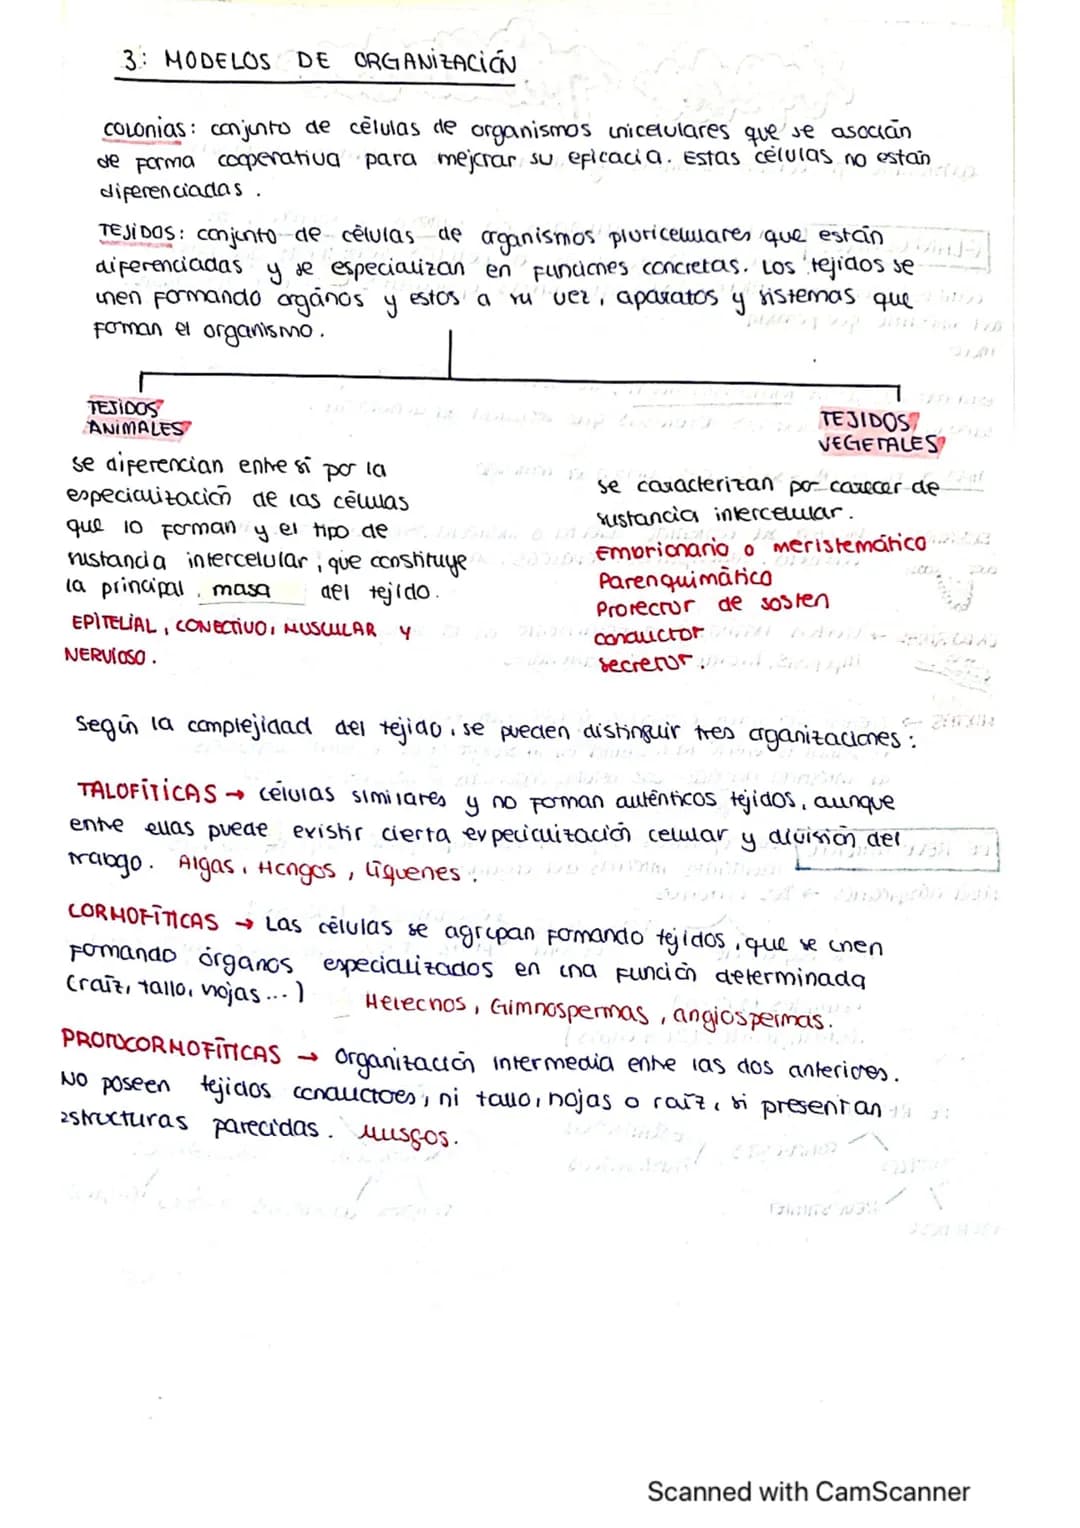 3: MODELOS DE ORGANIZACIÓN
COLONIAS: conjunto de células de organismos unicelulares que se asocian
de forma cooperativa para mejorar su eficacia. Estas células no están
diferenciadas.
TEJIDOS: conjunto de células de organismos pluricelulares que están
diferenciadas y se especializan en funciones concretas. Los tejidos se
unen formando órganos y estos a su vez, aparatos y sistemas que
forman el organismo.
TEJIDOS
ANIMALES
se diferencian entre sí por la
especialización de las células
que lo forman y el tipo de
sustancia intercelular, que constituye
la principal masa del tejido.
EPITELIAL, CONECTIVO, MUSCULAR Y
NERVIOSO.
TEJIDOS
VEGETALES
se caracterizan por carecer de
sustancia intercelular.
Embrionario o meristemático
Parenquimático
Protector de sosten
conductor
secretor.
Según la complejidad del tejido, se pueden distinguir tres organizaciones:
TALOFÍTICAS → células similares y no forman auténticos tejidos, aunque
entre ellas puede existir cierta especialización celular y división del
trabajo. Algas, Hongos, líquenes.
CORMOFÍTICAS → Las células se agrupan formando tejidos, que se unen
formando órganos especializados en una función determinada
(raíz, tallo, hojas...) Helechos, Gimnospermas, angiospermas.
PROTOCORMOFÍTICAS → Organización intermedia entre las dos anteriores.
No poseen tejidos conductores, ni tallo, hojas o raíz, si presentan
estructuras parecidas. Musgos.
Scanned with CamScanner